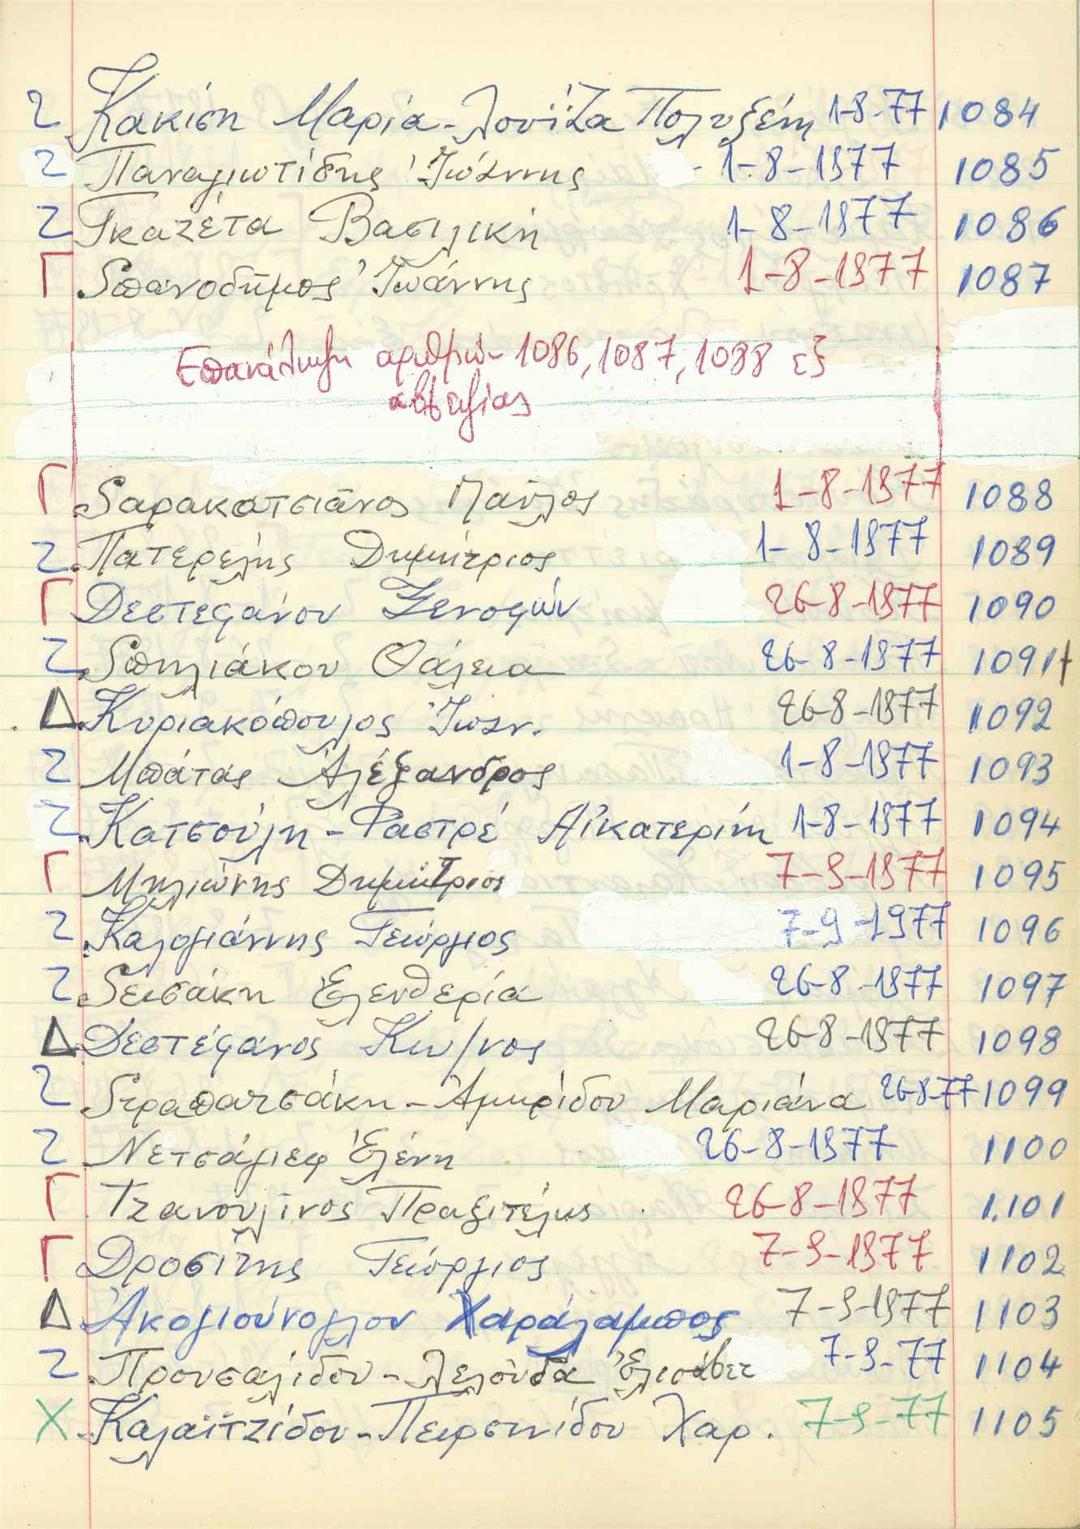 Ζ Κακίση Μαρία-Λουΐζα Πολυξένη 1-8-77 1084
Ζ Παναγιωτίδης Ἰωάννης 1-8-1977 1085
Ζ Γκαζέτα Βασιλική 1-8-1977 1086
Γ Σπανοδῆμος Ἰωάννης 1-8-1977 1087
Επανάληψη αριθμών 1086, 1087, 1088 εξ
αβλεψίας
Γ Σαρακατσιᾶνος Παῦλος 1-8-1977 1088
Ζ Πατερέλης Δημήτριος 1-8-1977 1089
Γ Δεστεφάνου Ξενοφών 26-8-1977 1090
Ζ Σπηλιάκου Θάλεια 26-8-1977 1091
Δ Κυριακόπουλος Ἰωάν. 26-8-1977 1092
Ζ Μπάτας Ἀλέξανδρος 1-8-1977 1093
Ζ Κατσούλη-Φαστρέ Αἰκατερίνη 1-8-1977 1094
Γ Μηλιώνης Δημήτριος 7-9-1977 1095
Ζ Καλογιάννης Γεώργιος 7-9-1977 1096
Ζ Σεισάκη Ἐλευθερία 26-8-1977 1097
Δ Δεστέφανος Κων/νος 26-8-1977 1098
Ζ Στραπατσάκη-Ἀμηρίδου Μαριάνα 26-8-77 1099
Ζ Νετσάγιεφ Ἑλένη 26-8-1977 1100
Γ Τζανουλῖνος Πραξιτέλης 26-8-1977 1101
Γ Δροσίτης Γεώργιος 7-9-1977 1102
Δ Χαράλαμπος 7-9-1977 1103
Ζ Προυσαλίδου-Λελούδα Ἐλισάβετ 7-9-77 1104
Χ Καλαϊτζίδου- Χαρ. 7-9-77 1105